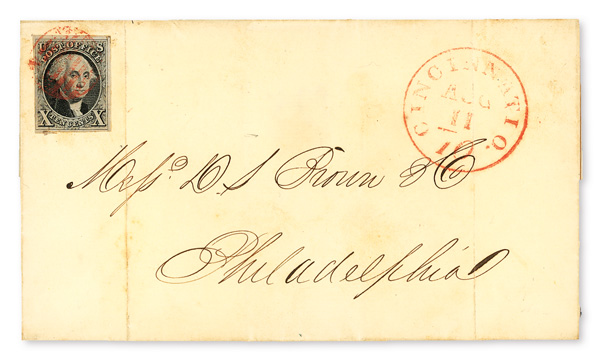 U S
POST OFFICE
X TEN CENTS X
CINCINNATI O.
AUG
11
10
Messrs D. S Brown & Co
Philadelphia